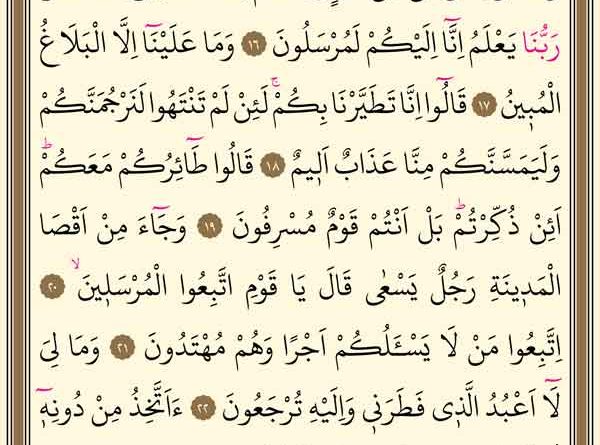 رَبُّنَا يَعْلَمُ اِنَّٓا اِلَيْكُمْ لَمُرْسَلُونَ ﴿١٦﴾ وَمَا عَلَيْنَٓا اِلَّا الْبَلَاغُ
الْمُبٖينُ ﴿١٧﴾ قَالُٓوا اِنَّا تَطَيَّرْنَا بِكُمْۚ لَئِنْ لَمْ تَنْتَهُوا لَنَرْجُمَنَّكُمْ
وَلَيَمَسَّنَّكُمْ مِنَّا عَذَابٌ اَلٖيمٌ ﴿١٨﴾ قَالُوا طَٓائِرُكُمْ مَعَكُمْؕ
اَئِنْ ذُكِّرْتُمْؕ بَلْ اَنْتُمْ قَوْمٌ مُسْرِفُونَ ﴿١٩﴾ وَجَٓاءَ مِنْ اَقْصَا
الْمَدٖينَةِ رَجُلٌ يَسْعٰى قَالَ يَا قَوْمِ اتَّبِعُوا الْمُرْسَلٖينَۙ ﴿٢٠﴾
اِتَّبِعُوا مَنْ لَا يَسْـَٔلُكُمْ اَجْرًا وَهُمْ مُهْتَدُونَ ﴿٢١﴾ وَمَا لِيَ
لَٓا اَعْبُدُ الَّذٖى فَطَرَنٖى وَاِلَيْهِ تُرْجَعُونَ ﴿٢٢﴾ ءَاَتَّخِذُ مِنْ دُونِهٖٓ